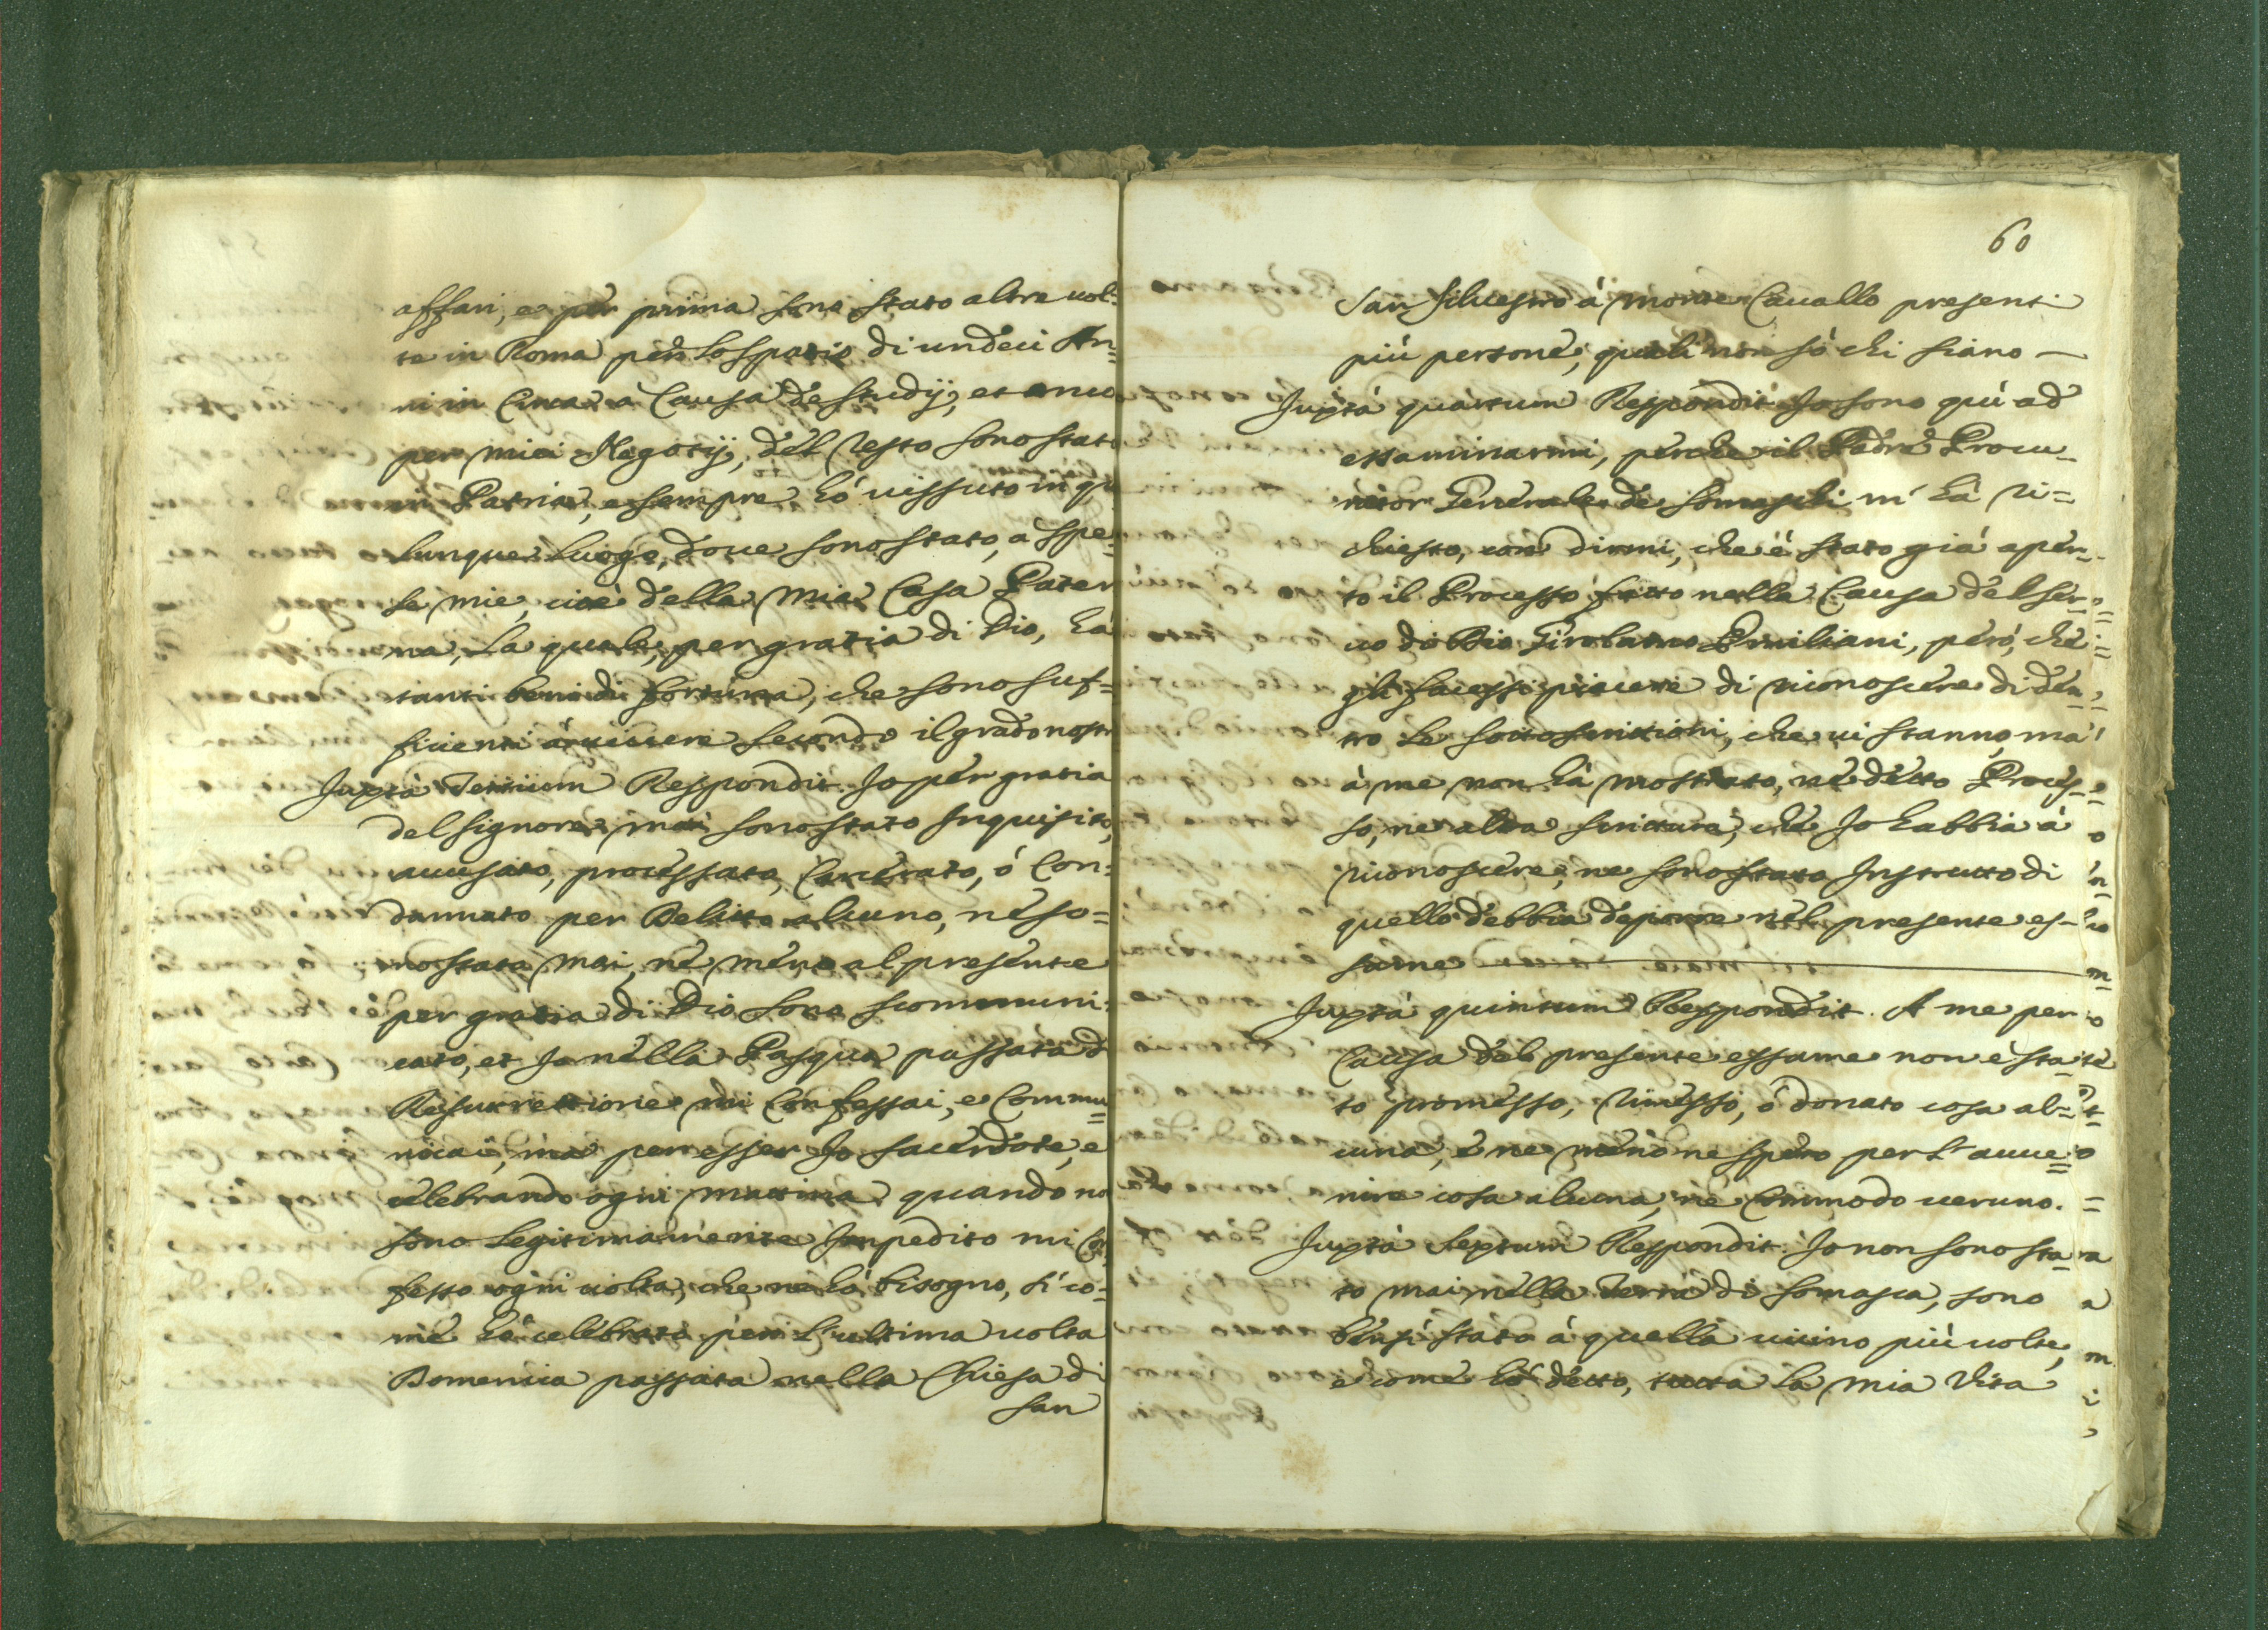 affari, e per prima sono stato altre uol=
te in Roma per lo spatio di undeci An=
ni in Circa à Causa de studij, et anco
per miei Negotij, del resto sono stato
in Patria, e sempre hó uissuto in qu
lunque Luogo, doue sono stato, a spe=
se mie, cioè della mia Casa Pater
na, La quale, per gratia di Dio, há
tanti beni di fortuna, che sono suf=
ficienti à uiuere secondo il grado nostr
Juxtà Tertium Respondit Jo per gratia
del signore mai sono stato Inquisito,
accusato, processato, Carcerato, ó Con=
dannato per Delitto alcuno, ne so=
no stato mai, né meno al presente
per gratia di Dio sono scommuni=
cato, et Jo nella Pasqua passata d
Resurrettione mi Confessai, e Commu=
nicai, ma per esser Jo sacerdote, e
celebrando ogni mattina quando no
sono Legitimamente Impedito mi Con
fesso ogni uolta, che ne hó bisogno, sí co=
me hó celebrato per L'ultima uolta
Domenica passata nella Chiesa di
san
60
San Siluestro á monte Cauallo presenti
piú persone, quali non só chi siano —
Juxtà quartum Respondit Jo sono qui ad
essaminarmi, perche il Padre Procu=
rator Generale de Somaschi m' há ri=
chiesto, con dirmi, che é stato giá aper=
to il Processo fatto nella Causa del Ser=
uo di Dio Girolamo Emiliani, peró, che
gli facessi piacere di riconoscere di den=
tro Le sottoscrittioni, che ui stanno má
á me non há mostrato, ne detto Proces=
so, ne altra scrittura, che Jo habbia á
riconoscere, ne sono stato Instrutto di
quello debbia deporre nel presente es=
same
Juxtà quintum Respondit. A me per
Causa del presente essame non é sta=
to promesso, rimesso, ó donato cosa al=
cuna, é ne meno ne spero per L'auue=
nire cosa alcuna, ne Commodo ueruno.
Juxtà Septum Respondit. Jo non sono sta=
to mai nella Terra di Somasca, sono
bensí stato á quella uicino piú uolte,
e come hó detto, tutta La mia Vita